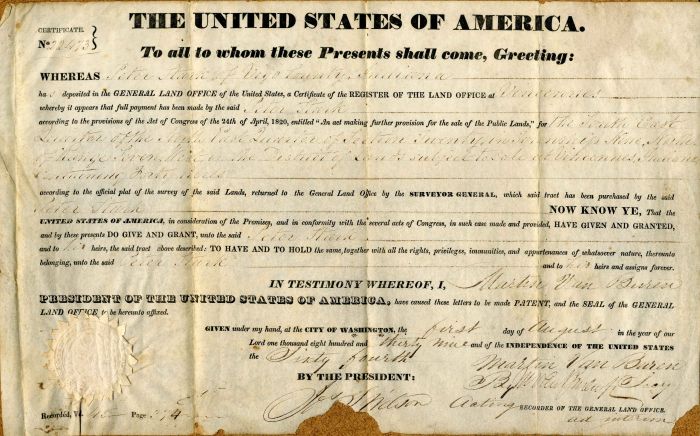 THE UNITED STATES OF AMERICA.
CERTIFICATE
No.
To all to whom these Presents shall come, Greeting:
WHEREAS Peter of Vigo County, Indiana
ha s deposited in the GENERAL LAND OFFICE of the United States, a Certificate of the REGISTER OF THE LAND OFFICE at Vincennes
whereby it appears that full payment has been made by the said Peter
according to the provisions of the Act of Congress of the 24th of April, 1820, entitled "An act making further provision for the sale of the Public Lands," for the South East
Quarter of the North East Quarter of Section Twenty in Township Nine North
of Range Seven West in the District of Lands subject to sale at Vincennes Indiana
Containing Forty acres
according to the official plat of the survey of the said Lands, returned to the General Land Office by the SURVEYOR GENERAL, which said tract has been purchased by the said
Peter
NOW KNOW YE, That the
UNITED STATES OF AMERICA, in consideration of the Premises, and in conformity with the several acts of Congress, in such case made and provided, HAVE GIVEN AND GRANTED,
and by these presents DO GIVE AND GRANT, unto the said Peter
and to his heirs, the said tract above described: TO HAVE AND TO HOLD the same, together with all the rights, privileges, immunities, and appurtenances of whatsoever nature, thereunto
belonging, unto the said Peter and to his heirs and assigns forever.
IN TESTIMONY WHEREOF, I, Martin Van Buren
PRESIDENT OF THE UNITED STATES OF AMERICA, have caused these letters to be made PATENT, and the SEAL of the GENERAL
LAND OFFICE to be hereunto affixed.
GIVEN under my hand, at the CITY OF WASHINGTON, the first day of August in the year of our
Lord one thousand eight hundred and thirty nine and of the INDEPENDENCE OF THE UNITED STATES
the Sixty fourth
Martin Van Buren
BY THE PRESIDENT:
By Secy
Wilson Acting RECORDER OF THE GENERAL LAND OFFICE.
ad interim
Recorded, Vol. Page